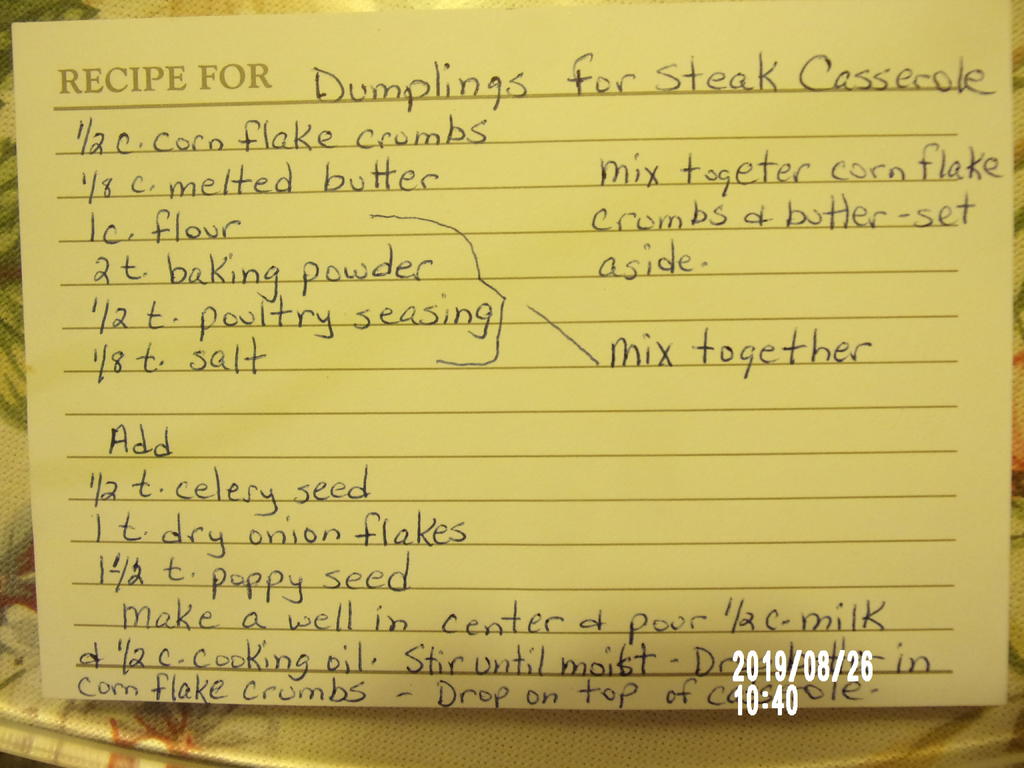 RECIPE FOR Dumplings for Steak Casserole
1/2 c. corn flake crumbs
1/8 c. melted butter
mix togeter corn flake
crumbs & butter - set
aside.
1 c. flour
2 t. baking powder
1/2 t. poultry seasing
1/8 t. salt
mix together
Add
1/2 t. celery seed
1 t. dry onion flakes
1 1/2 t. poppy seed
Make a well in center & pour 1/2 c. milk
& 1/2 c. cooking oil. Stir until moist - in
corn flake crumbs - Drop on top of casserole.
2019/08/26
10:40